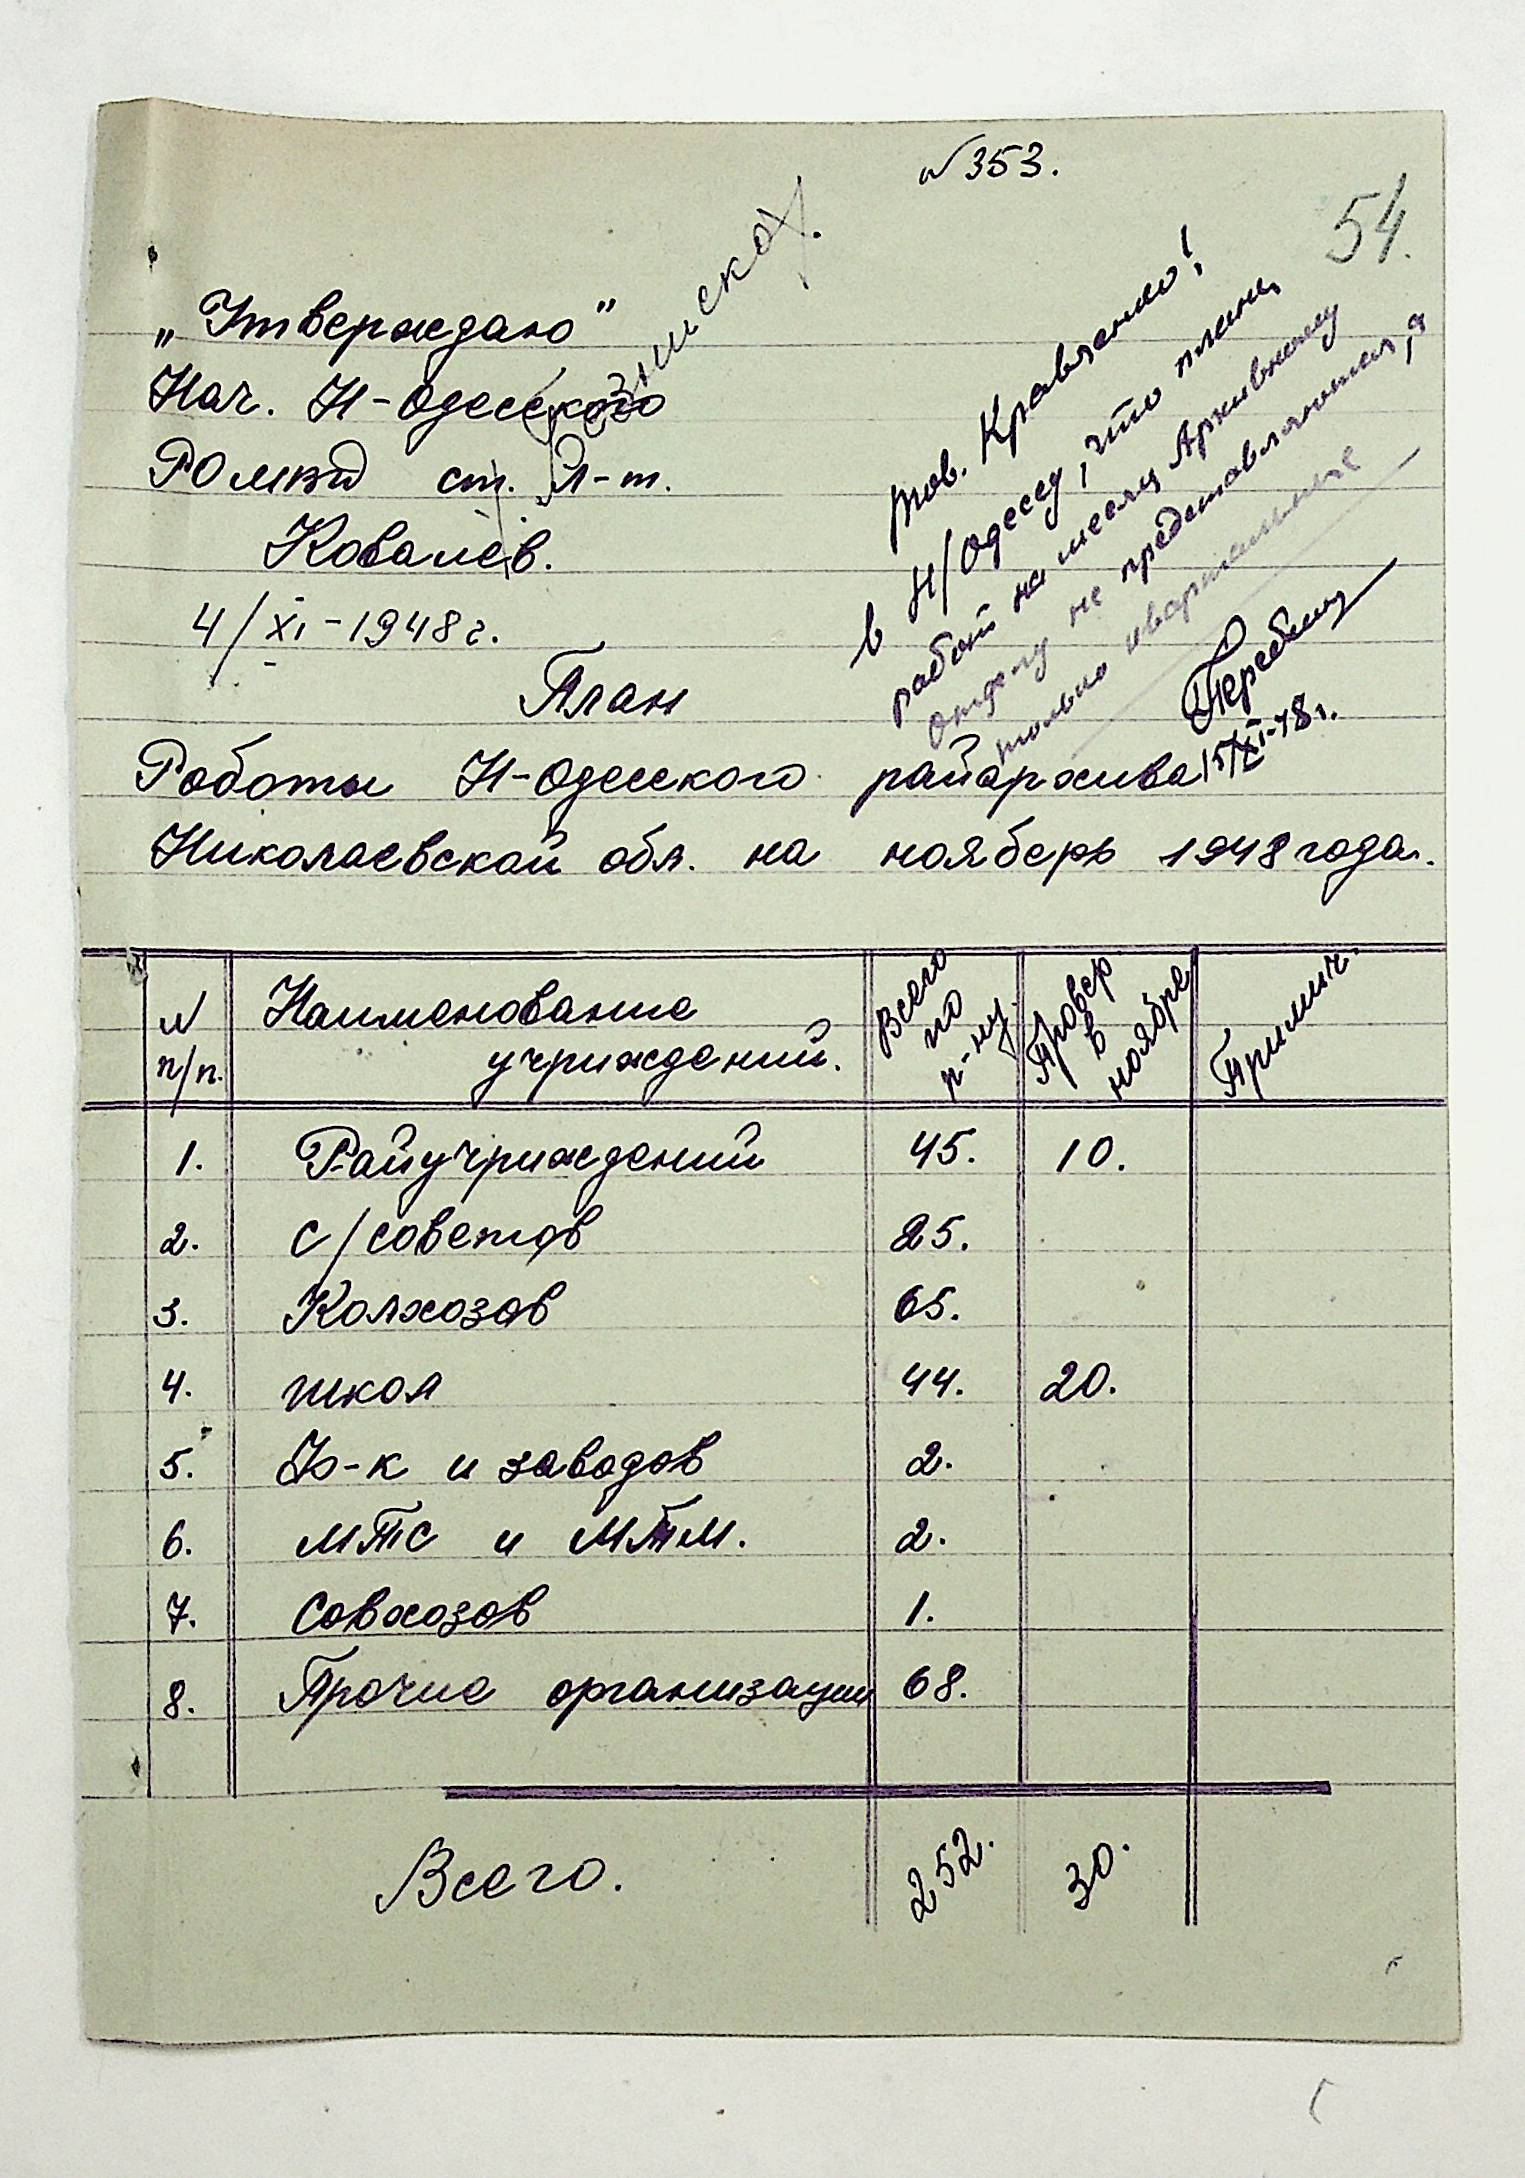 № 353.
54.
„Утверждаю"
Нач. Н-Одесского
РОМВД ст. Л-т.
Ковалев.
4/XI-1948 г.
тов. Кравченко!
в Н/Одессу, что план
работ на месяц Архивному
отделу не представляются, а
только квартальные
15/XI-48 г.
План
Работы Н-Одесского райархива
Николаевской обл. на ноябрь 1948 года.
№ п/п. Наименование учриждений. Всего по р-ну. Провер в ноябре Примич.
1. Райучриждений 45. 10.
2. с/советов 25.
3. Колхозов 65.
4. школ 44. 20.
5. Ф-к и заводов 2.
6. МТС и МТМ. 2.
7. Совхозов 1.
8. Прочие организации 68.
Всего. 252. 30.